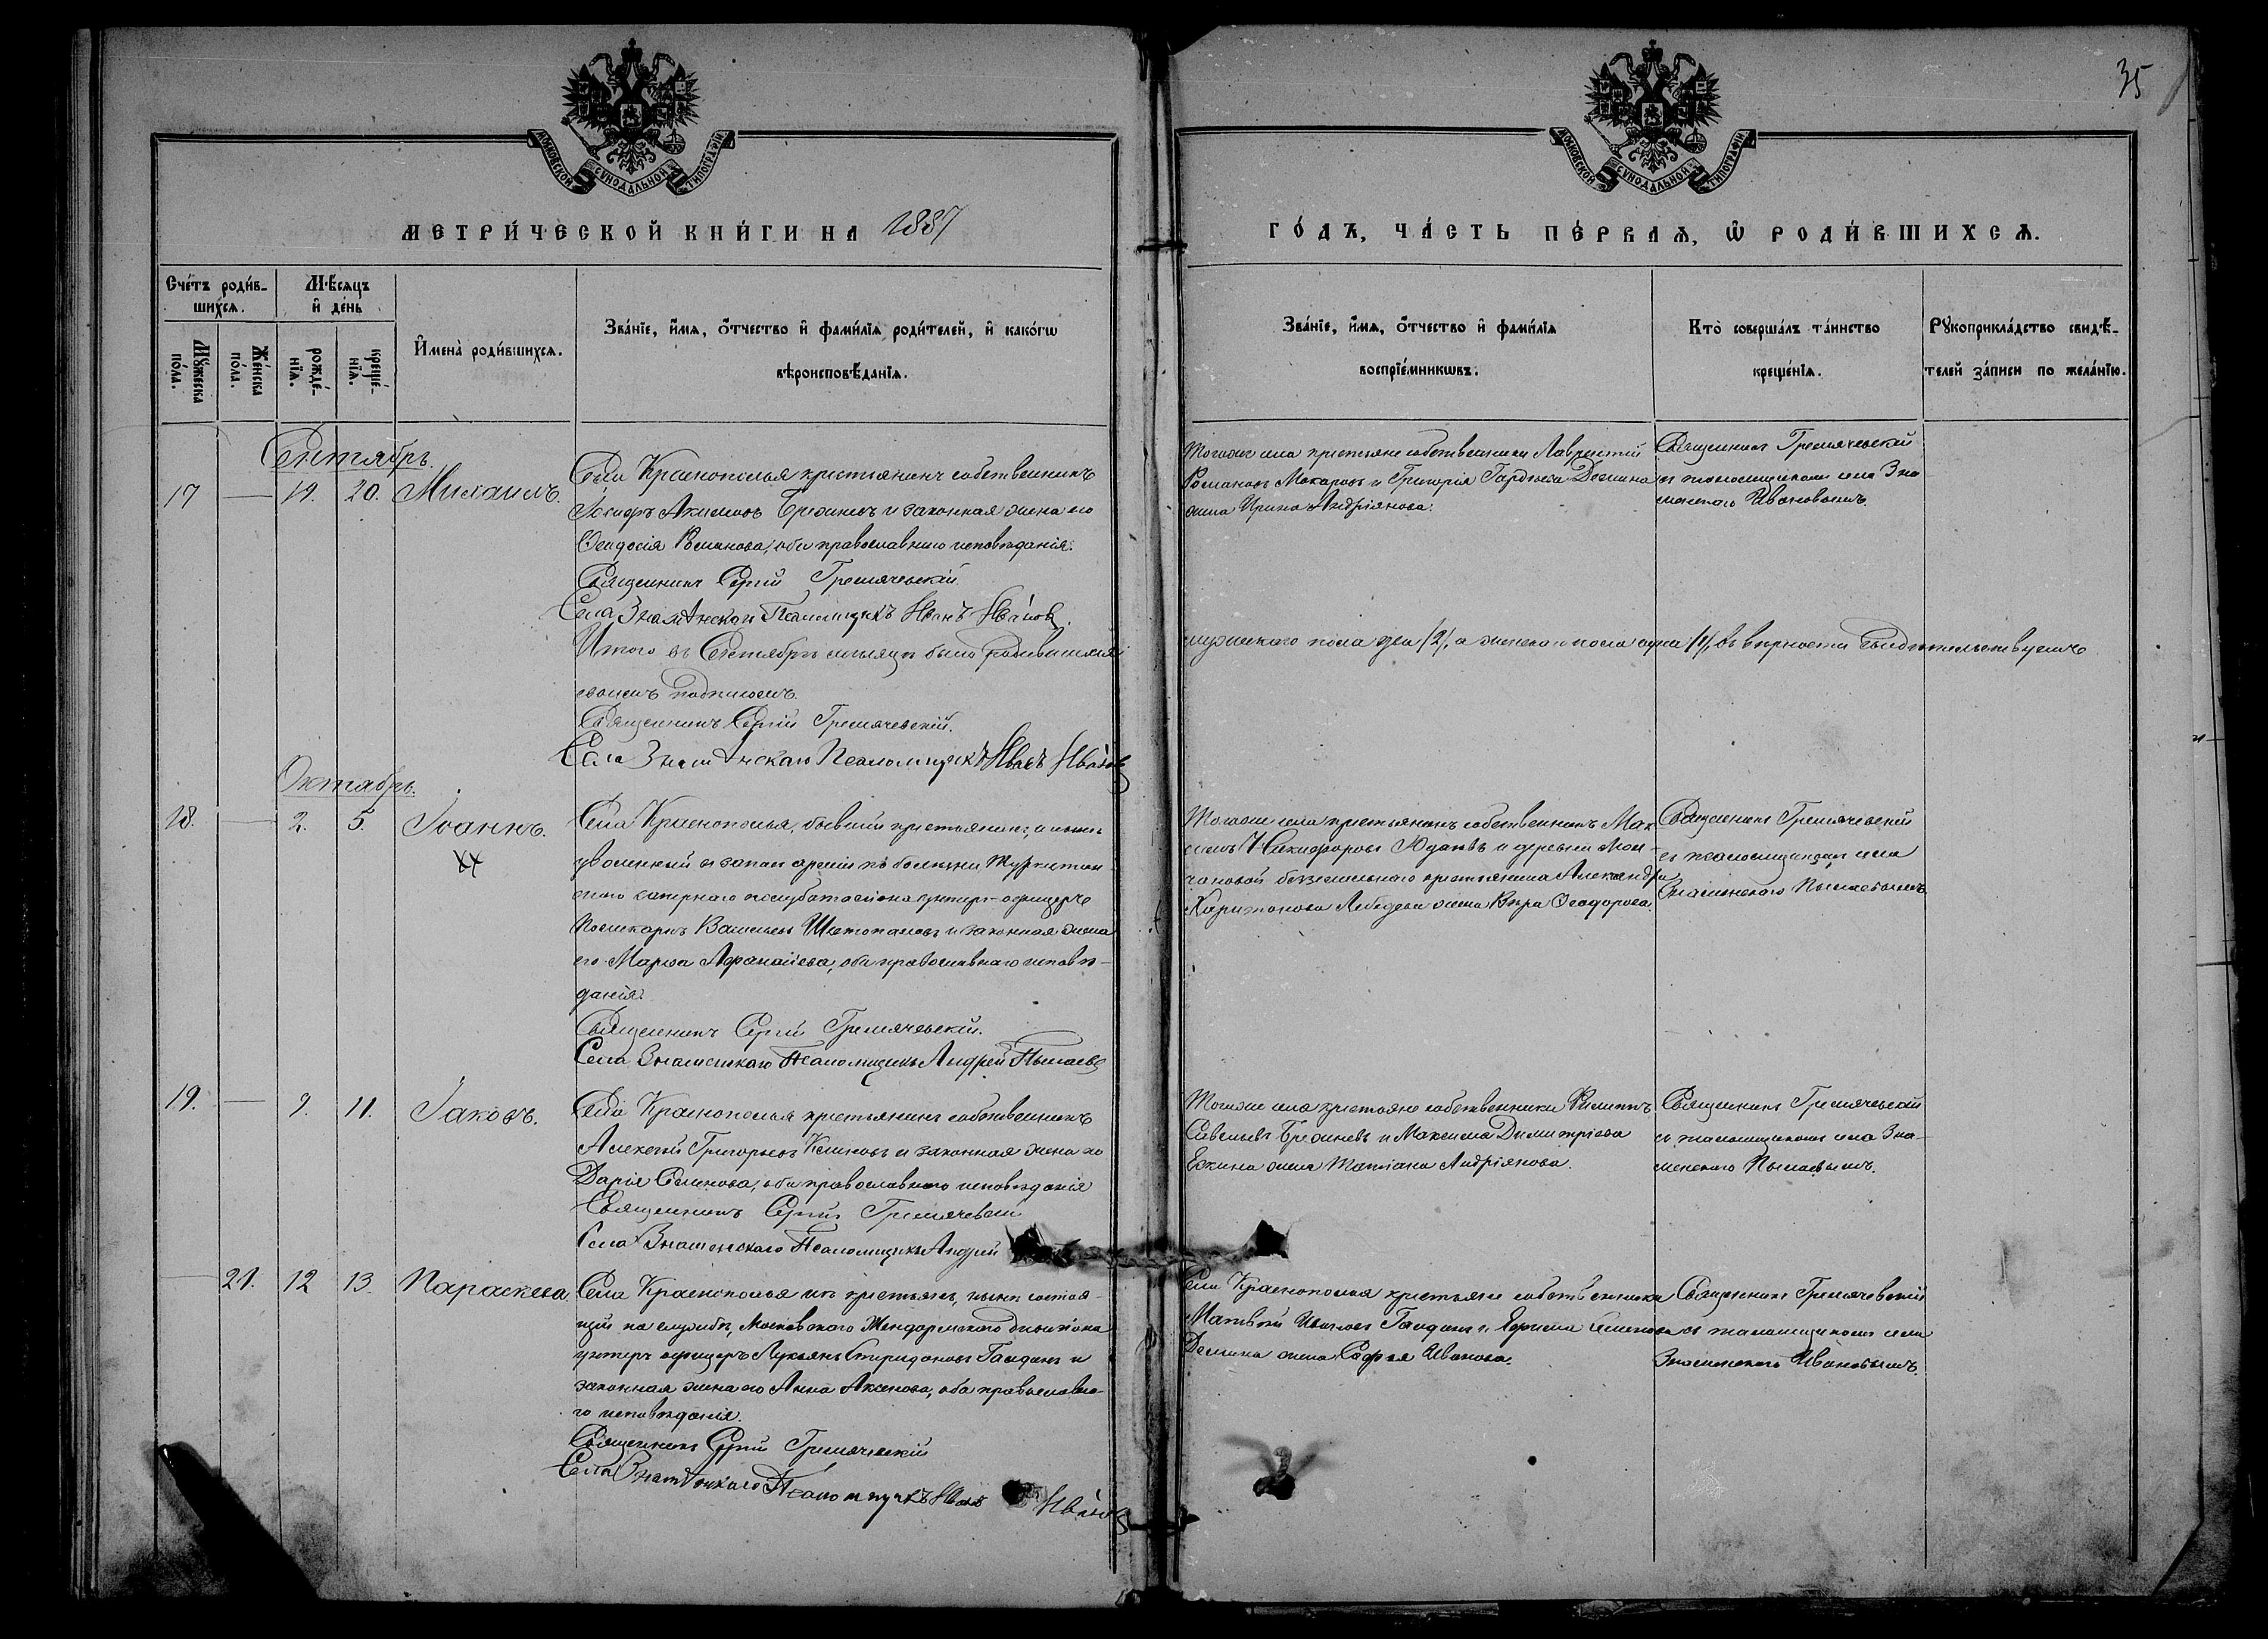 35
МОСКОВСКОЙ СѴНОДАЛЬНОЙ ТИПОГРАФІИ
МОСКОВСКОЙ СѴНОДАЛЬНОЙ ТИПОГРАФІИ
МЕТРИ́ЧЕСКОЙ КНИ́ГИ НА 1887
ГО́ДЪ, ЧА́СТЬ ПЕ́РВАѦ, Ѡ҆ РОДИ́ВШИХСѦ.
Сче́тъ роди́в-
шихсѧ.
Мѣ́сѧцъ
и҆ де́нь
Мꙋ́жеска
по́ла.
Же́нска
по́ла.
рожде́-
нїѧ.
креще́-
нїѧ.
И҆мена̀ роди́вшихсѧ.
Зва́нїе, и҆́мѧ, ѻ҆́тчество и҆ фами́лїѧ роди́телей, и҆ како́гѡ
вѣроисповѣ́данїѧ.
Зва́нїе, и҆́мѧ, ѻ҆́тчество и҆ фами́лїѧ
воспрїе́мникѡвъ.
Кто̀ соверша́лъ та́инство
креще́нїѧ.
Рꙋкоприкла́дство свидѣ́-
телей за́писи по жела́нїю.
Сентябрь.
17 — 19. 20. Михаилъ.
Села Краснополья крестьянинъ собственникъ
Іосифъ Акимовъ и законная жена его
Ѳеодосія Романова, оба православнаго исповѣданія.
Священникъ Сергій Гремячевскій.
Села Знаменскаго Псаломщикъ Иванъ Ивановъ.
Тогоже села крестьяне собственники Лаврентій
Романовъ Макаровъ и Григорія Гордѣева Демина
жена Ирина Андріянова.
Священникъ Гремячевскій
съ псаломщикомъ села Зна
менскаго Ивановымъ.
Итого въ Сентябрѣ мѣсяцѣ было родившихся
мужескаго пола два /2/, а женскаго пола одна /1/, въ вѣрности свидѣтельствуемъ
своимъ подписомъ.
Священникъ Сергій Гремячевскій.
Села Знаменскаго Псаломщикъ Иванъ Ивановъ
Октябрь.
18. — 2. 5. Іоаннъ.
Села Краснополья, бывшій крестьянинъ, а нынѣ
уволенный въ запас арміи по болѣзни Туркестан
скаго сапернаго полубаталіона унтеръ-офицеръ
Поликарпъ Васильевъ и законная жена
его Марѳа Аѳанасіева, оба православнаго исповѣ-
данія.
Священникъ Сергій Гремячевскій.
Села Знаменскаго Псаломщикъ Андрей Пылаевъ
Тогоже села крестьянинъ собственникъ Мак
симъ Никифоровъ и деревни Мол-
чановой безземельнаго крестьянина Александра
Харитонова Лебедева жена Вѣра Ѳеодорова.
Священникъ Гремячевскій
съ псаломщикомъ села
Знаменскаго Пылаевымъ.
19. — 9. 11. Іаковъ.
Села Краснополья крестьянинъ собственникъ
Алексѣй Григорьевъ Климовъ и законная жена его
Дарія Семенова, оба православнаго исповѣданія
Священникъ Сергій Гремячевскій
Села Знаменскаго Псаломщикъ Андрей
Тогоже села крестьяне собственники Филиппъ
Савельевъ и Максима Димитріева
Ежкина жена Татіана Андріянова.
Священникъ Гремячевскій
съ псаломщикомъ села Зна-
менскаго Пылаевымъ.
— 21. 12 13. Параскева.
Села Краснополья изъ крестьянъ, нынѣ состоя-
щій на службѣ, Московскаго Жандармскаго дивизіона
унтеръ офицеръ Лукьянъ Спиридоновъ и
законная жена его Анна Аксенова, оба православна-
го исповѣданія.
Священникъ Сергій Гремячевскій
Села Знаменскаго Псаломщикъ Иванъ Ивановъ
Села Краснополья крестьяне собственники
Матвѣй и Ефрема Семенова
Демина жена Софья Иванова.
Священникъ Гремячевскій
съ псаломщикомъ села
Знаменскаго Ивановымъ.